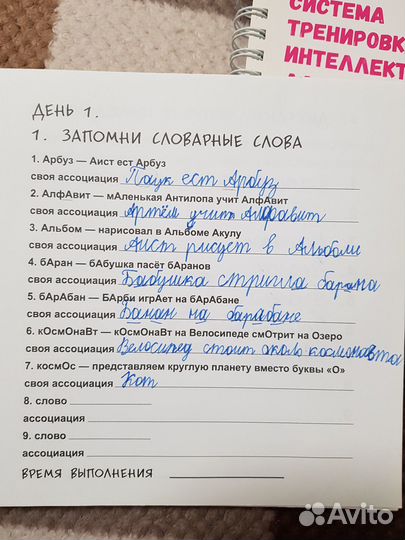 СИСТЕМА
ТРЕНИРОВК
ИНТЕЛЛЕКТ
ДЕНЬ 1.
1. ЗАПОМНИ СЛОВАРНЫЕ СЛОВА
1. Арбуз — Аист ест Арбуз
своя ассоциация Паук ест Арбуз
2. АлфАвит — мАленькая Антилопа учит АлфАвит
своя ассоциация Артём учит Алфавит
3. Альбом — нарисовал в Альбоме Акулу
своя ассоциация Аист рисует в Альбоме
4. бАран — бАбушка пасёт бАранов
своя ассоциация Бабушка стригла барана
5. бАрАбан — БАрби игрАет на бАрАбане
своя ассоциация Банан на барабане
6. кОсмОнаВт — кОсмОнаВт на Велосипеде смОтрит на Озеро
своя ассоциация Велосипед стоит около космонавта
7. космОс — представляем круглую планету вместо буквы «О»
своя ассоциация Кот
8. слово
ассоциация
9. слово
ассоциация
ВРЕМЯ ВЫПОЛНЕНИЯ
Avito